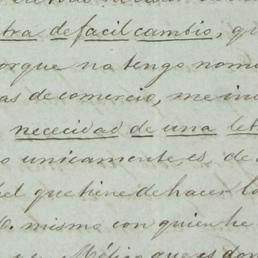 tra de facil cambio, qu
orque no tengo nom
as de comercio, me in
nececidad de una let
o unicamente es, de
el que hine de hacer la
O. mismo con quien he
Méjico que es don